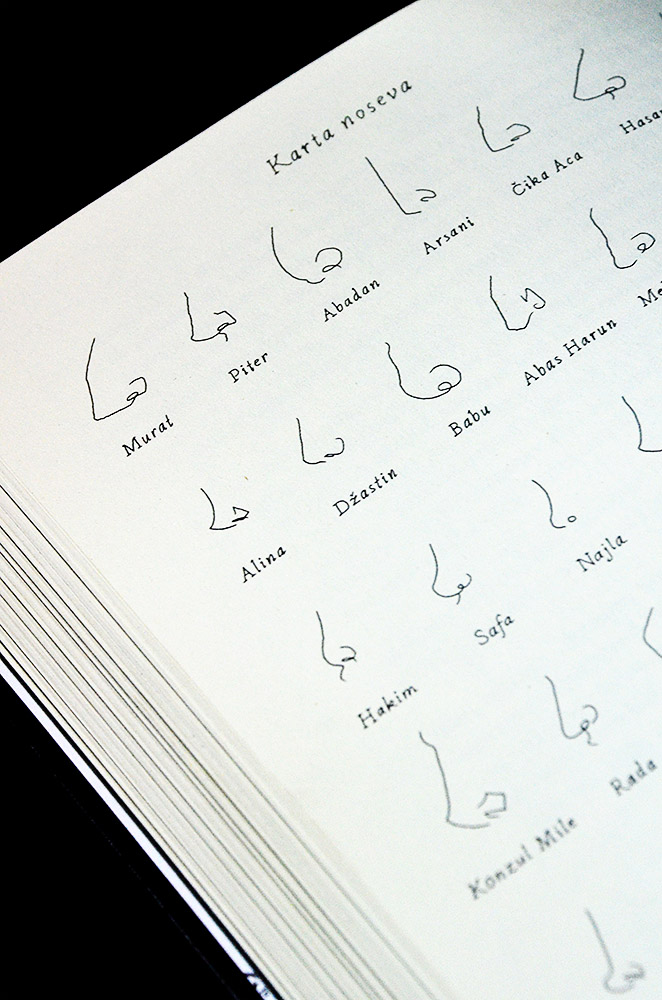 Karta noseva
Murat Piter Abadan Arsani Čika Aca
Alina Džastin Babu Abas Harun
Hakim Safa Najla
Konzul Mile Rada